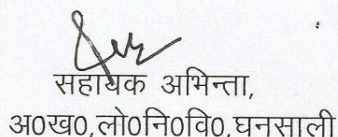 सहायक अभिन्ता,
अ०ख०,लो०नि०वि०,घनसाली